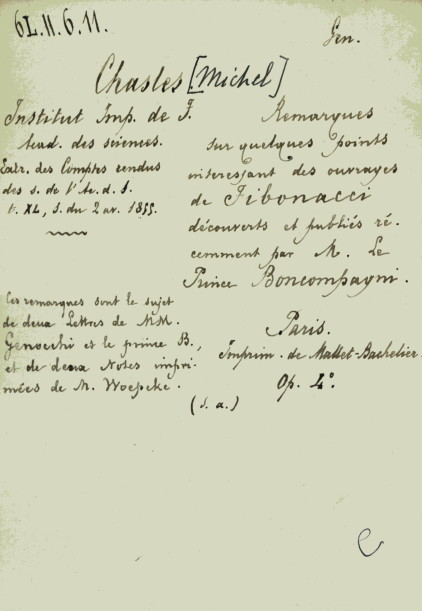 6L.11.6.11.
Gen.
Chasles [Michel]
Institut Imp. de F.
Acad. des sciences.
Extr. des Comptes rendus
des s. de l'Ac. d. S.
t. XL, s. du 2 av. 1855.
Remarques
sur quelques points
interessant des ouvrages
de Fibonacci
découverts et publiés ré-
cemment par M. Le
Prince Boncompagni.
Ces remarques sont le sujet
de deux Lettres de MM.
Genocchi et le prince B.,
et de deux Notes impri-
mées de M. Woepcke.
Paris.
Imprim. de Mallet-Bachelier.
Op. 4°.
(s. a.)